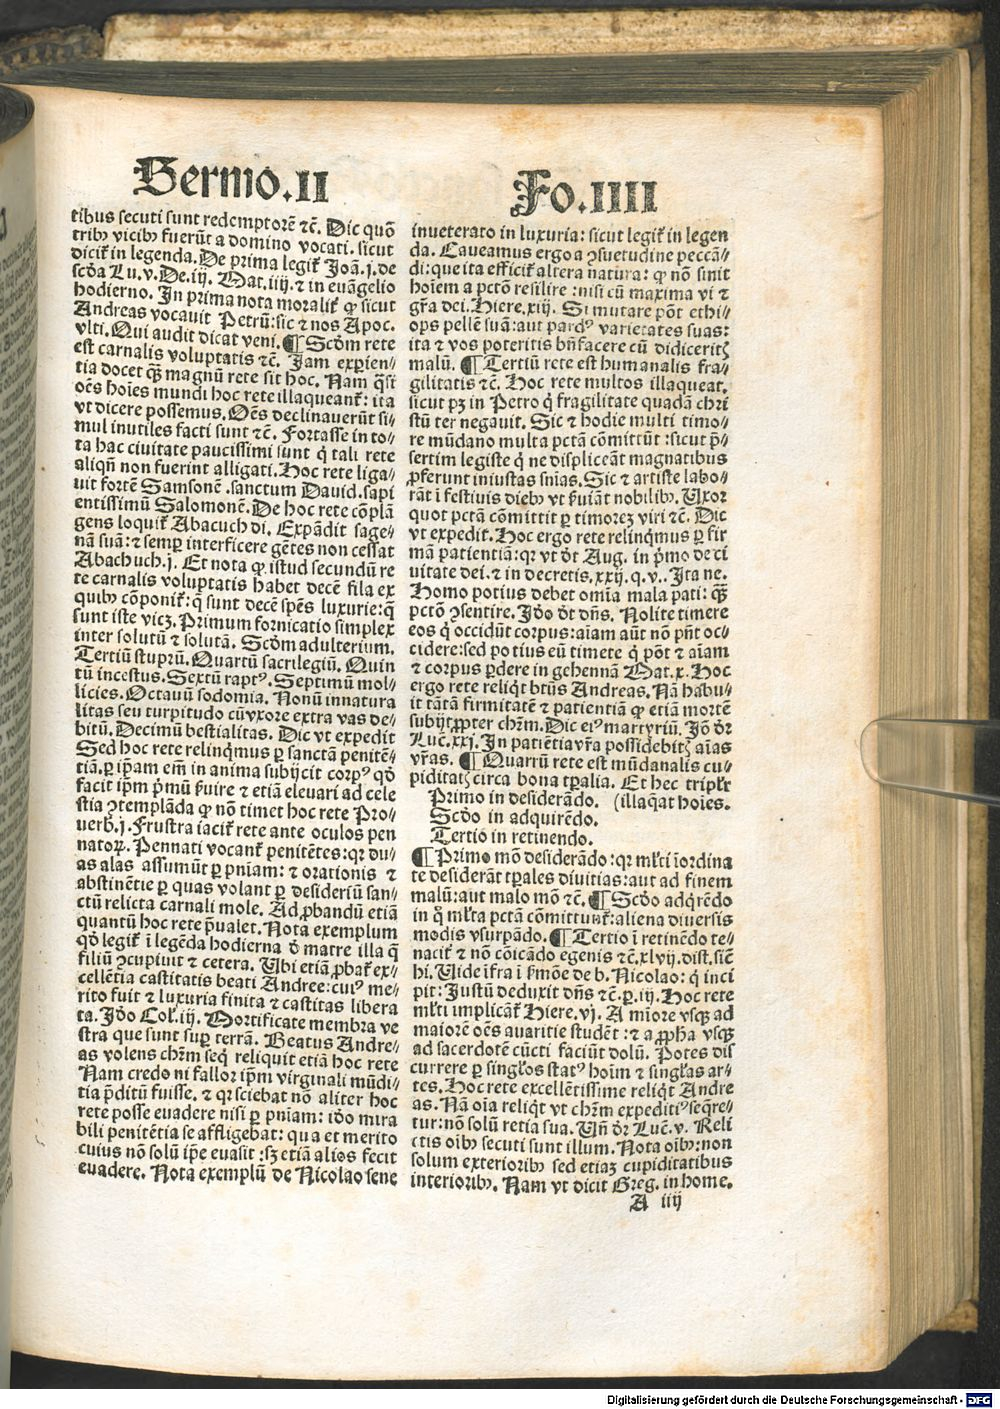 Sermo.II
Fo.IIII
tibus secuti sunt redemptorē ⁊č. Dic quō
tribꝰ vicibꝰ fuerūt a domino vocati. sicut
dicit᷑ in legenda. De prima legit᷑ Joā.j. de
scďa Lu.v. De.iij. Mat.iiij. ⁊ in euāgelio
hodierno. In prima nota moralit᷑ ꝙ sicut
Andreas vocauit Petrū: sic ⁊ nos Apoc.
vlti. Qui audit dicat veni. ¶ Scďm rete
est carnalis voluptatis ⁊č. Jam experien⸗
tia docet qȝ magnū rete sit hoc. Nam q̄si
oēs hoīes mundi hoc rete illaqueant᷑: ita
vt dicere possemus. Oēs declinauerūt si⸗
mul inutiles facti sunt ⁊č. Fortasse in to⸗
ta hac ciuitate paucissimi sunt q̇ tali rete
aliqn̄ non fuerint alligati. Hoc rete liga⸗
uit fortē Samsonē. sanctum Dauid. sapi
entissimū Salomonē. De hoc rete cōplā
gens loquit᷑ Abacuch di. Expādit sage⸗
nā suā: ⁊ semꝑ interficere gētes non cessat
Abachuch.j. Et nota ꝙ istud secundū re
te carnalis voluptatis habet decē fila ex
quibꝰ cōponit᷑: q̄ sunt decē spēs luxurie: q̄
sunt iste vicȝ. Primum fornicatio simplex
inter solutū ⁊ solutā. Scďm adulterium.
Tertiū stuprū. Quartū sacrilegiū. Quin
tū incestus. Sextū raptꝰ. Septimū mol⸗
licies. Octauū sodomia. Nonū innatura
litas seu turpitudo cū vxore extra vas de⸗
bitū. Decimū bestialitas. Dic vt expedit
Sed hoc rete relinq̇mus ꝑ sanctā penitē⸗
tiā. ꝑ ip̄am em̄ in anima subijcit corpꝰ qď
facit ip̄m p̄mū ẜuire ⁊ etiā eleuari ad cele
stia ꝯtemplāda ꝙ nō timet hoc rete Pro⸗
uerb.j. Frustra iacit᷑ rete ante oculos pen
natoꝝ. Pennati vocant᷑ penitētes: qꝛ du⸗
as alas assumūt ꝑ pn̄iam: ⁊ orationis ⁊
abstinētie ꝑ quas volant ꝑ desideriū san⸗
ctū relicta carnali mole. Ad ꝓbandū etiā
quantū hoc rete p̄ualet. Nota exemplum
qď legit᷑ ī legēda hodierna ď matre illa q̄
filiū ꝯcupiuit ⁊ cetera. Ubi etiā ꝓbat᷑ ex⸗
cellētia castitatis beati Andree: cuiꝰ me⸗
rito fuit ⁊ luxuria finita ⁊ castitas libera
ta. Jďo Coł.iij. Mortificate membra ve
stra que sunt suꝑ terrā. Beatus Andre⸗
as volens chr̄m seq̇ reliquit etiā hoc rete
Nam credo ni fallor ip̄m virginali mūdi⸗
tia p̄ditū fuisse. ⁊ qꝛ sciebat nō aliter hoc
rete posse euadere nisi ꝑ pn̄iam: iďo mira
bili penitētia se affligebat: qua et merito
cuius nō solū ip̄e euasit: sȝ etiā alios fecit
euadere. Nota exemplū de Nicolao sene
inueterato in luxuria: sicut legit᷑ in legen
da. Caueamus ergo a ꝯsuetudine peccā⸗
di: que ita efficit᷑ altera natura: ꝙ nō sinit
hoīem a pctō resilire: nisi cū maxima vi ⁊
gr̄a dei. Hiere.xiij. Si mutare pōt ethi⸗
ops pellē suā: aut pardꝰ varietates suas:
ita ⁊ vos poteritis bn̄facere cū didiceritȝ
malū. ¶ Tertiū rete est humanalis fra⸗
gilitatis ⁊č. Hoc rete multos illaqueat.
sicut pȝ in Petro q̇ fragilitate quadā chri
stū ter negauit. Sic ⁊ hodie multi timo⸗
re mūdano multa pctā cōmittūt: sicut p̄⸗
sertim legiste q̇ ne displiceāt magnatibus
ꝓferunt iniustas sn̄ias. Sic ⁊ artiste labo⸗
rāt ī festiuis diebꝰ vt ẜuiāt nobilibꝰ. Uxor
quot pctā cōmittit ꝑ timoreȝ viri ⁊č. Dic
vt expedit. Hoc ergo rete relinq̇mus ꝑ fir
mā patientiā: qꝛ vt ďt Aug. in p̄mo de ci
uitate dei. ⁊ in decretis. xxij. q.v.. Ita ne.
Homo potius debet om̄ia mala pati: qȝ
pctō ꝯsentire. Jďo ďt dn̄s. Nolite timere
eos q̇ occidūt corpus: aīam aūt nō pn̄t oc⸗
cidere: sed potius eū timete q̇ pōt ⁊ aīam
⁊ corpus ꝑdere in gehennā Mat.x. Hoc
ergo rete reliq̇t btūs Andreas. Nā habu⸗
it tātā firmitatē ⁊ patientiā ꝙ etiā mortē
subijt ꝓpter chr̄m. Dic eiꝰ martyriū. Jō ďr
Luč.xxj. In patiētia vr̄a possidebitȝ aīas
vr̄as. ¶ Quartū rete est mūdanalis cu⸗
piditatȝ circa bona tꝑalia. Et hec triplr̄
Primo in desiderādo. (illaq̇at hoīes.
Scďo in adquirēdo.
Tertio in retinendo.
¶ Primo mō desiderādo: qꝛ młti īordina
te desiderāt tꝑales diuitias: aut ad finem
malū: aut malo mō ⁊č. ¶ Scďo adq̇rēdo
in q̊ młta pctā cōmittunt᷑: aliena diuersis
modis vsurpādo. ¶ Tertio ī retinēdo te⸗
nacit᷑ ⁊ nō cōicādo egenis ⁊č. xlvij. dist. sič
hi. Uide īfra ī ẜmōe de b. Nicolao: q̇ inci
pit: Justū deduxit dn̄s ⁊č. ꝑ.iij. Hoc rete
młti implicāt᷑ Hiere.vj. A mīore vsqȝ ad
maiorē oēs auaritie studēt: ⁊ a ꝓpha vsqȝ
ad sacerdotē cūcti faciūt dolū. Potes dis
currere ꝑ singłos statꝰ hoīm ⁊ singłas ar⸗
tes. Hoc rete excellētissime reliq̇t Andre
as. Nā oīa reliq̇t vt chr̄m expeditiꝰ seq̄re⸗
tur: nō solū retia sua. Un̄ ďr Luč.v. Reli
ctis oībꝰ secuti sunt illum. Nota oībꝰ: non
solum exterioribꝰ sed etiaȝ cupiditatibus
interioribꝰ. Nam vt dicit Greg. in home.
A iiij
Digitalisierung gefördert durch die Deutsche Forschungsgemeinschaft - DFG